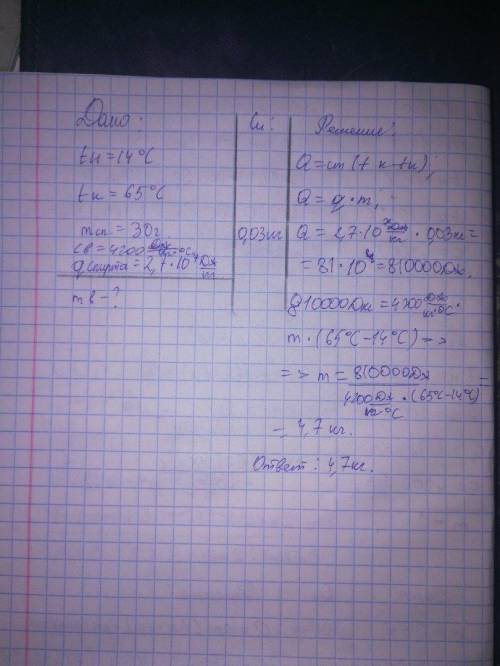 Дано:
tн = 14°C
tк = 65°C
mсп = 30г
cв = 4200 Дж/кг·°C
qспирта = 2,7·10⁴ Дж/m
mв - ?
Си:
0,03кг
Решение:
Q = cm(tк - tн);
Q = q·m;
Q = 2,7·10 Дж/кг · 0,03кг =
= 81·10⁴ = 810000Дж.
810000Дж = 4200 Дж/кг·°C ·
m·(65°C - 14°C) =>
=> m = 810000Дж / 4200 Дж/кг·°C · (65°C - 14°C) =
= 4,7 кг.
Ответ: 4,7кг.